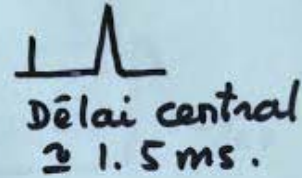 Délai central
≃ 1.5 ms.